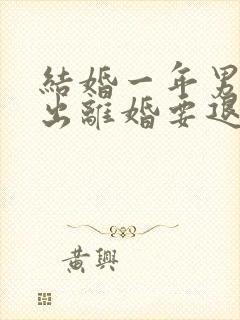 結婚一年男
出離婚要退
黃興